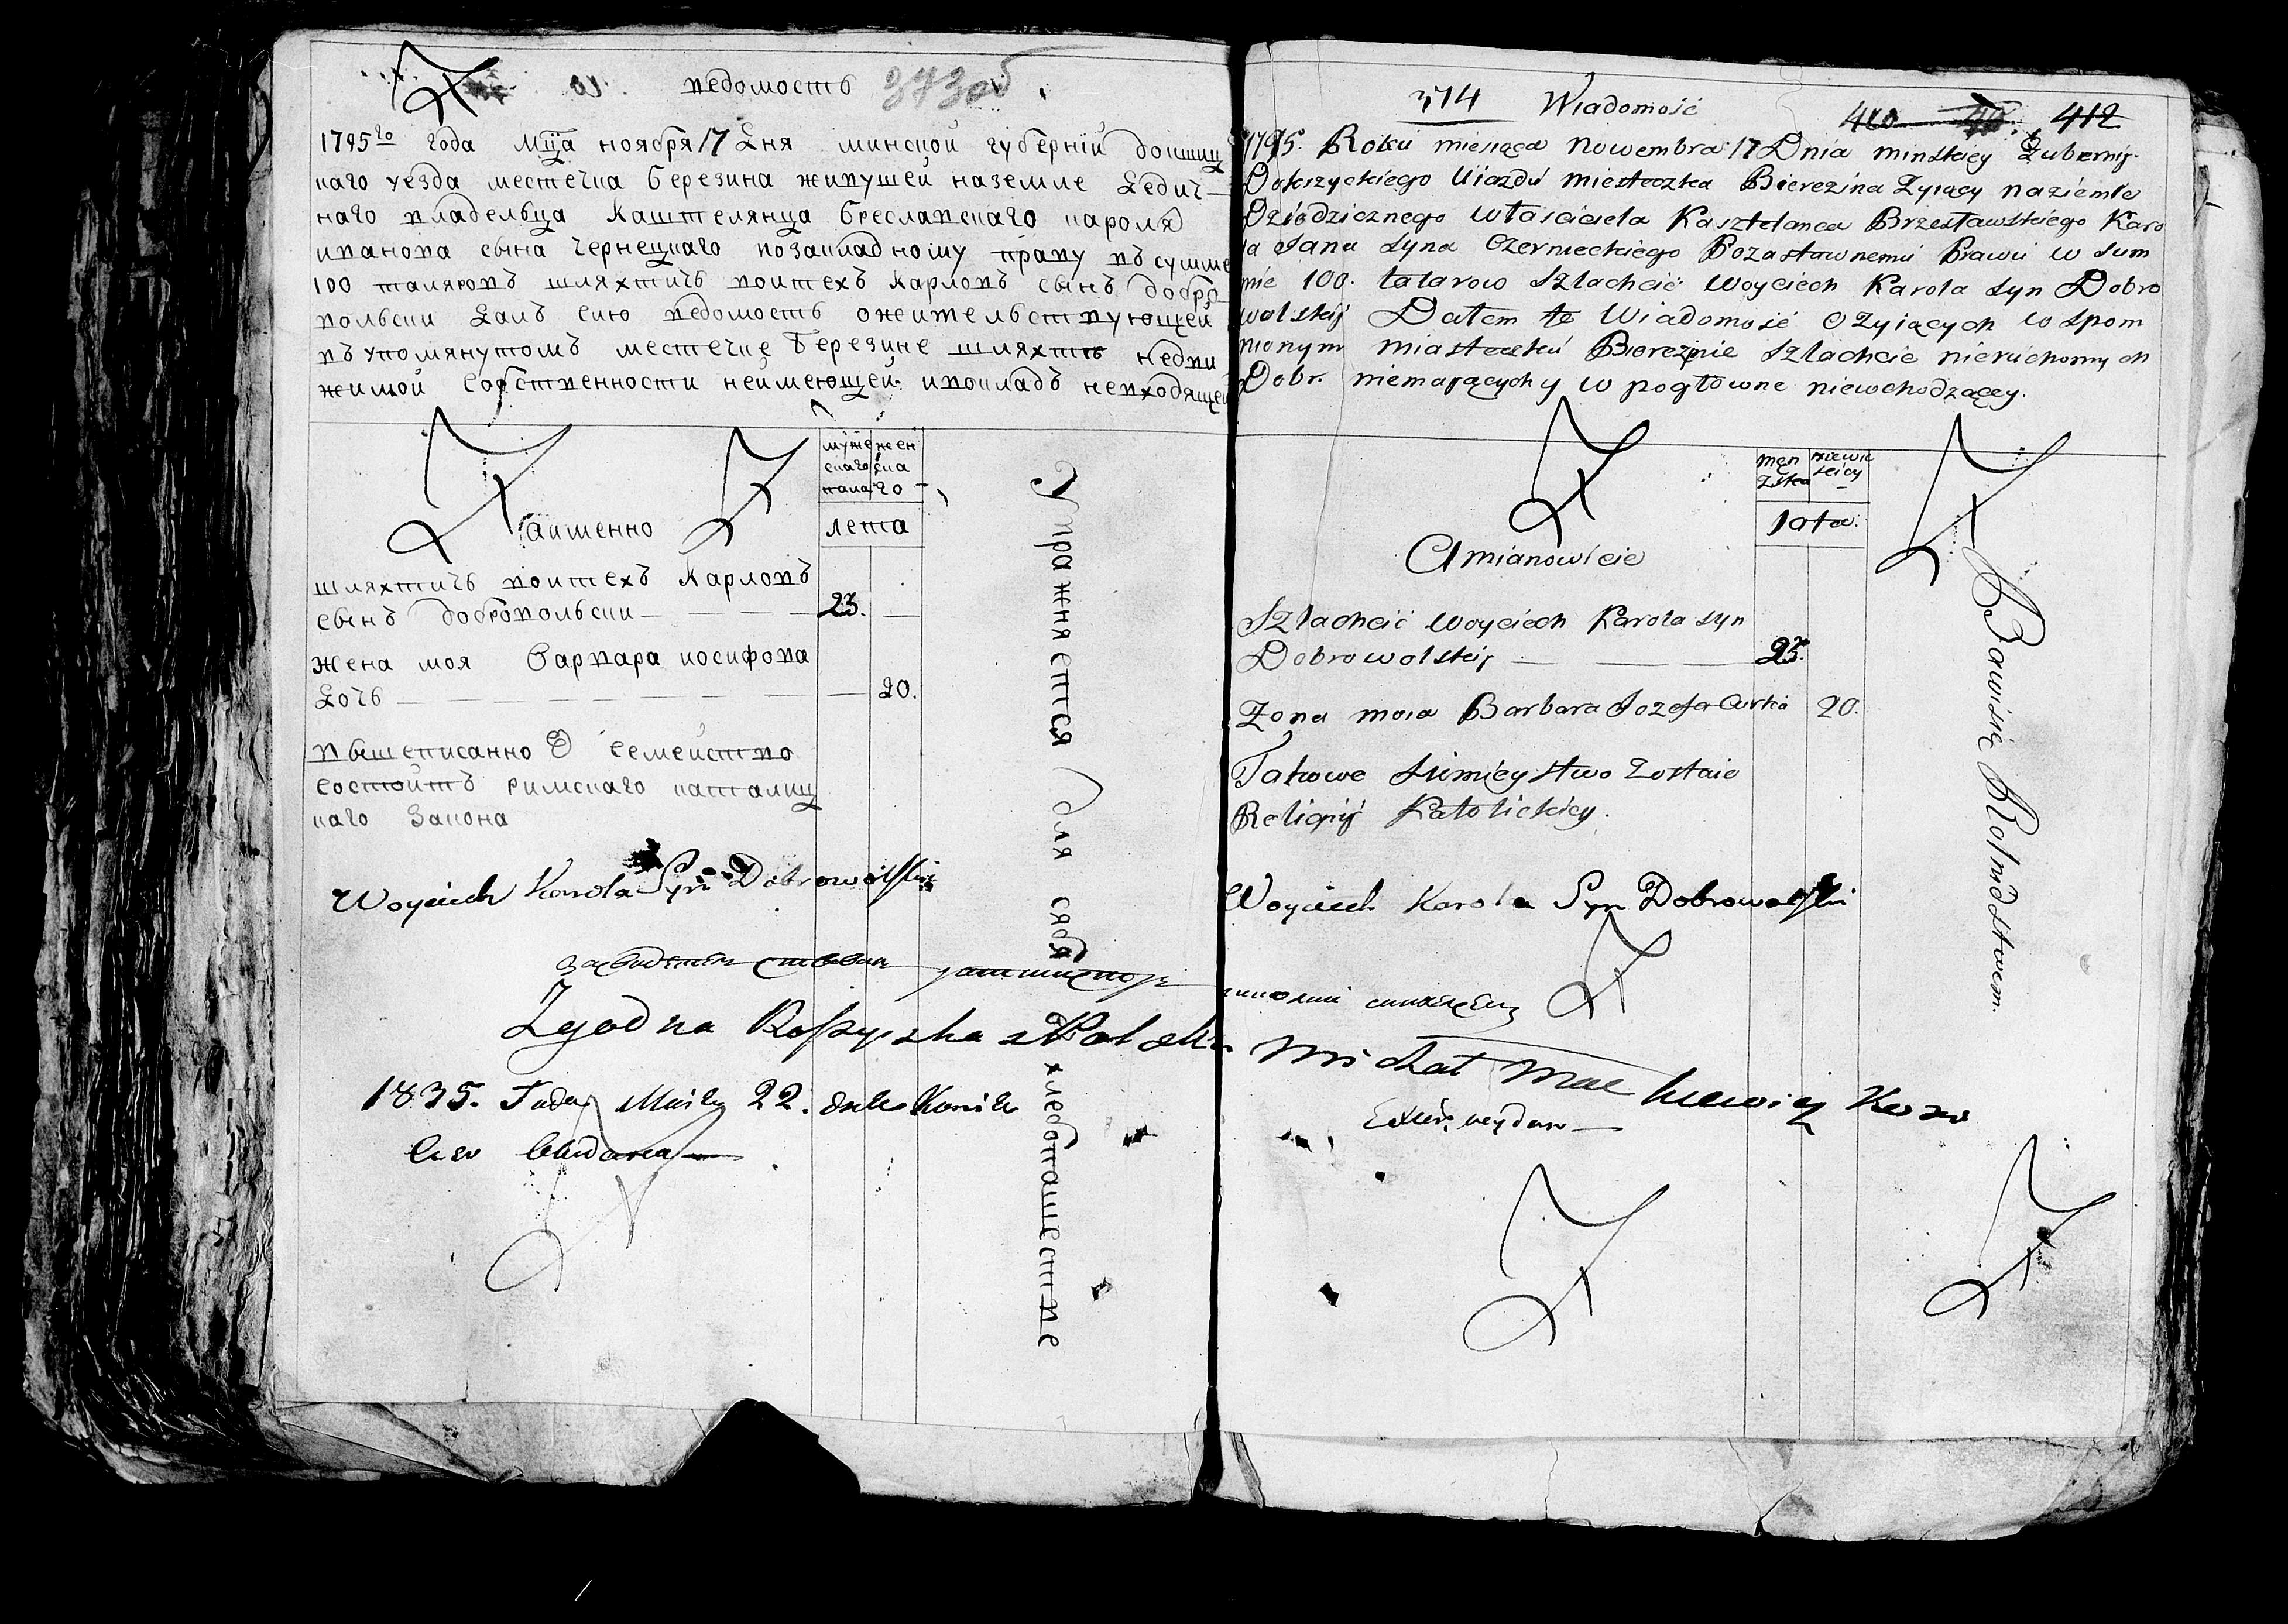 ведомость 373об
1795го года мца ноября 17 дня минской губернїи докшиц
каго уезда местечка березина живущей наземле Дедич-
наго владельца каштелянца бреславскаго кароля
иванова сына чернецкаго позакладному праву въ сумме
100 таляровъ шляхтичъ воитехъ карловъ сынъ добро
вольски далъ сию ведомость ожительствующей
въ упомянутомъ местечке березине шляхте недви
жимой собственности неимеющей ивокладъ невходящей
мужескаго пола
женскаго
аименно
лета
шляхтичъ воитехъ карловъ
сынъ добровольски — 23. —
жена моя варвара иосифова
дочь — — 20.
вышеписанно Е семейство
состоитъ римскаго католиц
каго закона
Упражняется для себя в хлебопашестве
Woyciech Karola Syn Dobrowolski
Zgodna
1835.
22.
374 Wiadomość
410 412
1795. Roku miesiąca Nowembra 17 Dnia minskiey Gubernij
Dokszyckiego Ujazdu miesteczka Bierezina Zyiący naziemle
Dziedzicznego własciciela Kasztelanca Brzesławskiego Karo
la Jana syna Czernieckiego Pozastawnemu Prawu w sum
mie 100. talarow Szlachcić Woyciech Karola syn Dobro
wolskij Dałem te Wiadomość o Zyiących wo spom
nionym miasteczku Bierezinie Szlachcie nieruchomych
Dobr. niemaiących y w pogłowne niewchodzącey.
męn
zska
niewie
sciey
lata.
Amianowicie
Szlachcić Woyciech Karola syn
Dobrowolskij — 23.
Zona moia Barbara Jozefa Curka 20.
Takowe Simieystwo Zostaie
Religij Katolickiey.
Bawisię Rolnidstwem.
Woyciech Karola Syn Dobrowolski
Michał